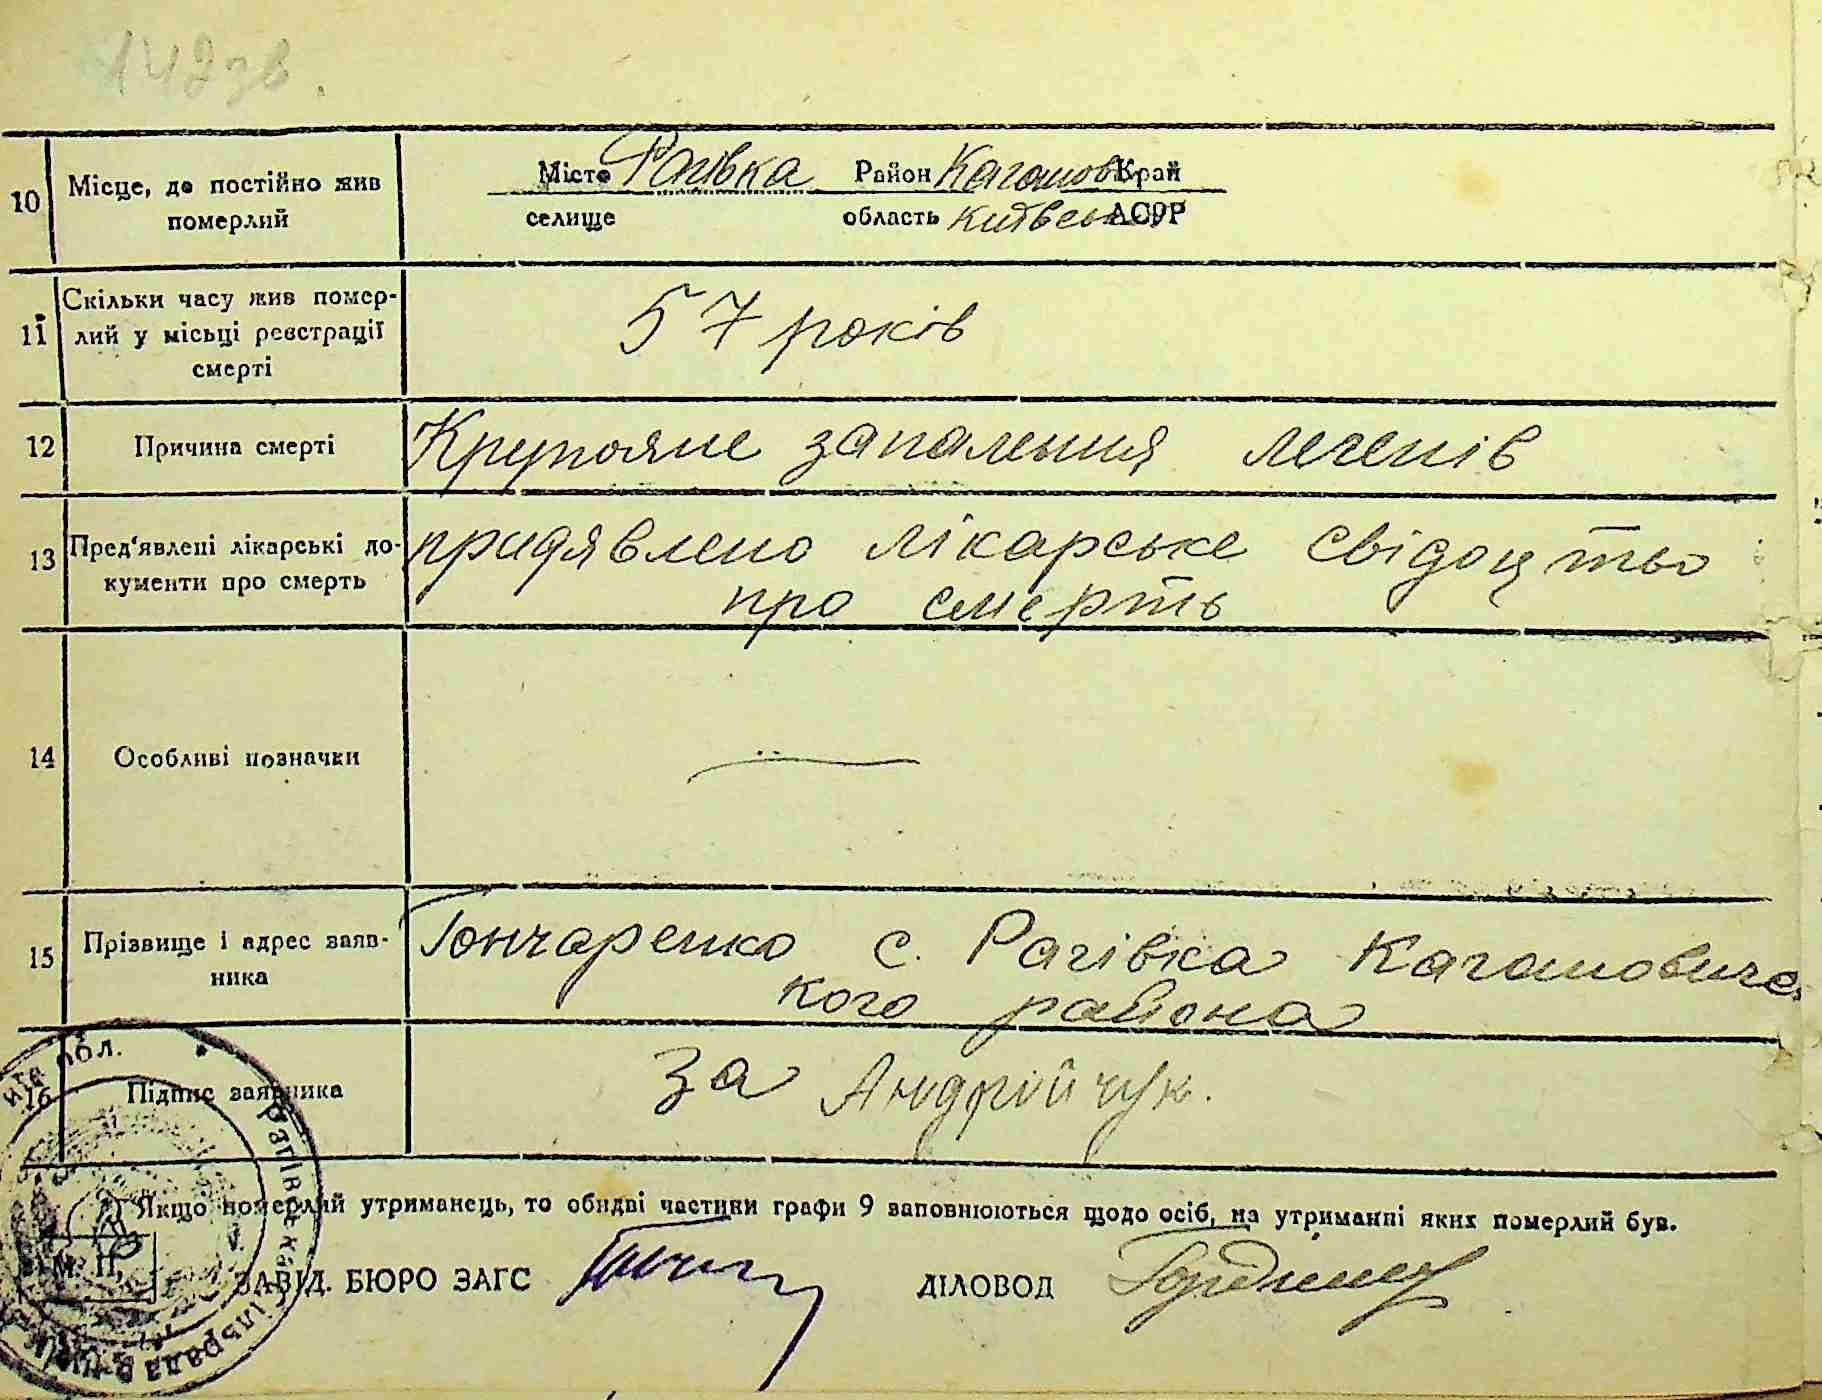 142 зв.
10 Місце, де постійно жив померлий
Місто Рагівка Район Каганов Край
селище область Київськ АСРР
11 Скільки часу жив помер-
лий у місьці реєстрації
смерті
57 років
12 Причина смерті Крупозне запалення легенів
13 Пред'явлені лікарські до-
кументи про смерть
придявлено лікарське свідоцтво
про смерть
14 Особливі позначки
15 Прізвище і адрес заяв-
ника
Гончаренко с. Рагівка Кагановичс
кого района
16 Підпис заявника за Андрійчук.
Якщо померлий утриманець, то обидві частини графи 9 заповнюються щодо осіб, на утриманні яких померлий був.
М. П.
ЗАВІД. БЮРО ЗАГС ДІЛОВОД
обл. * Рагівська сільрада